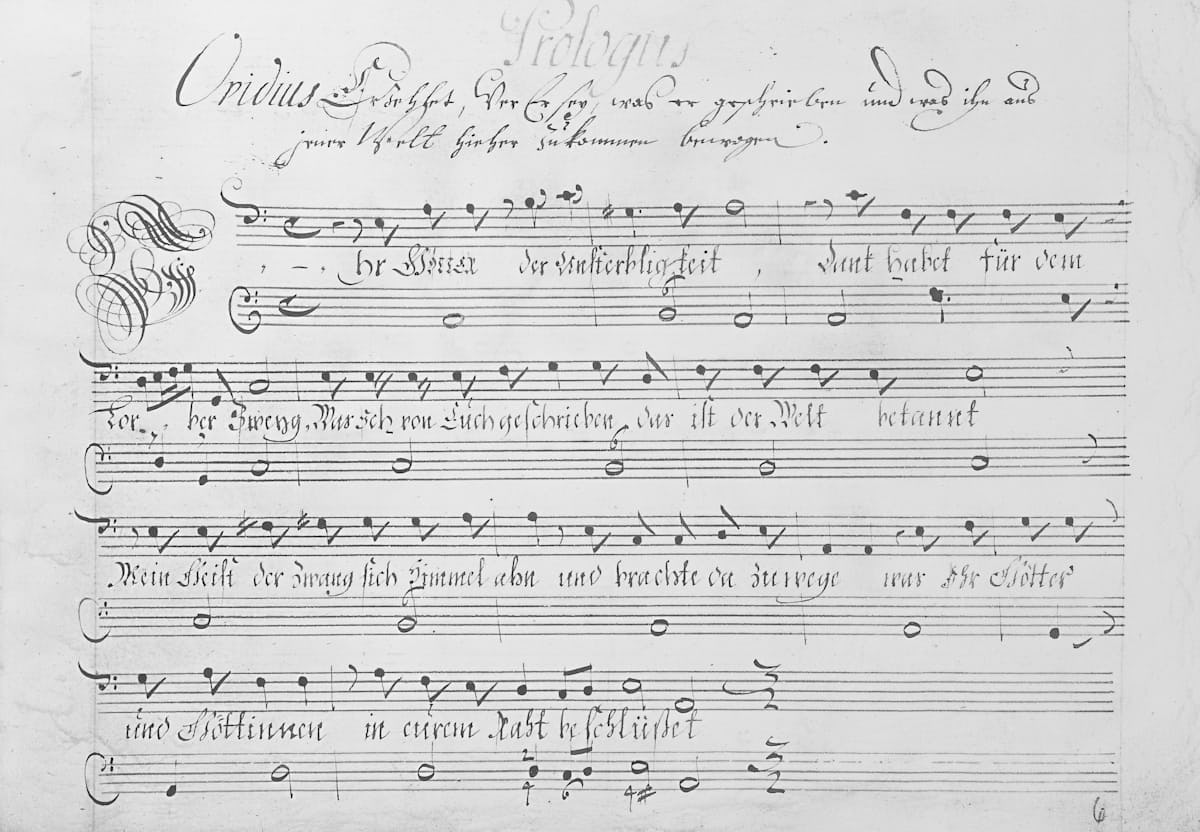 Prologus
Ovidius Erzehlet, Wer Er sey, was er geschrieben und was ihn aus
jener Welt hieher zukommen bewogen.
Ihr Götter der Unsterbligkeit, Dank habet für dem
Lor-ber Zweyg, Was Ich von Euch geschrieben, das ist der Welt bekannt
Mein Geist der zwang sich Himmel ahn und brachte da zuwege was Ihr Götter
und Göttinnen in eurem Raht beschlüßet
6